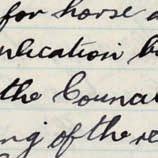 for horse
plication
the Counc
ng of the re